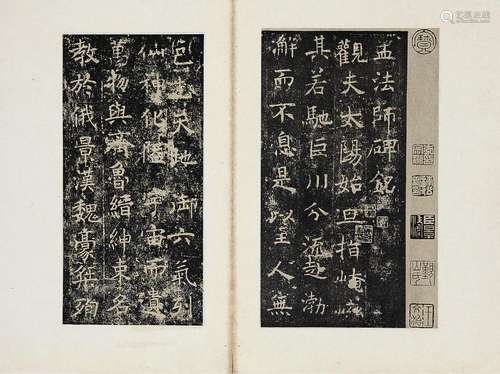 孟法師碑銘
觀夫太陽始旦指崦嵫
其若馳巨川分流赴渤
澥而不息是以至人無
己先天地御六氣列
仙神化陵宇宙而遺
萬物與齊魯縉紳束名
教於俄景漢魏豪桀殉